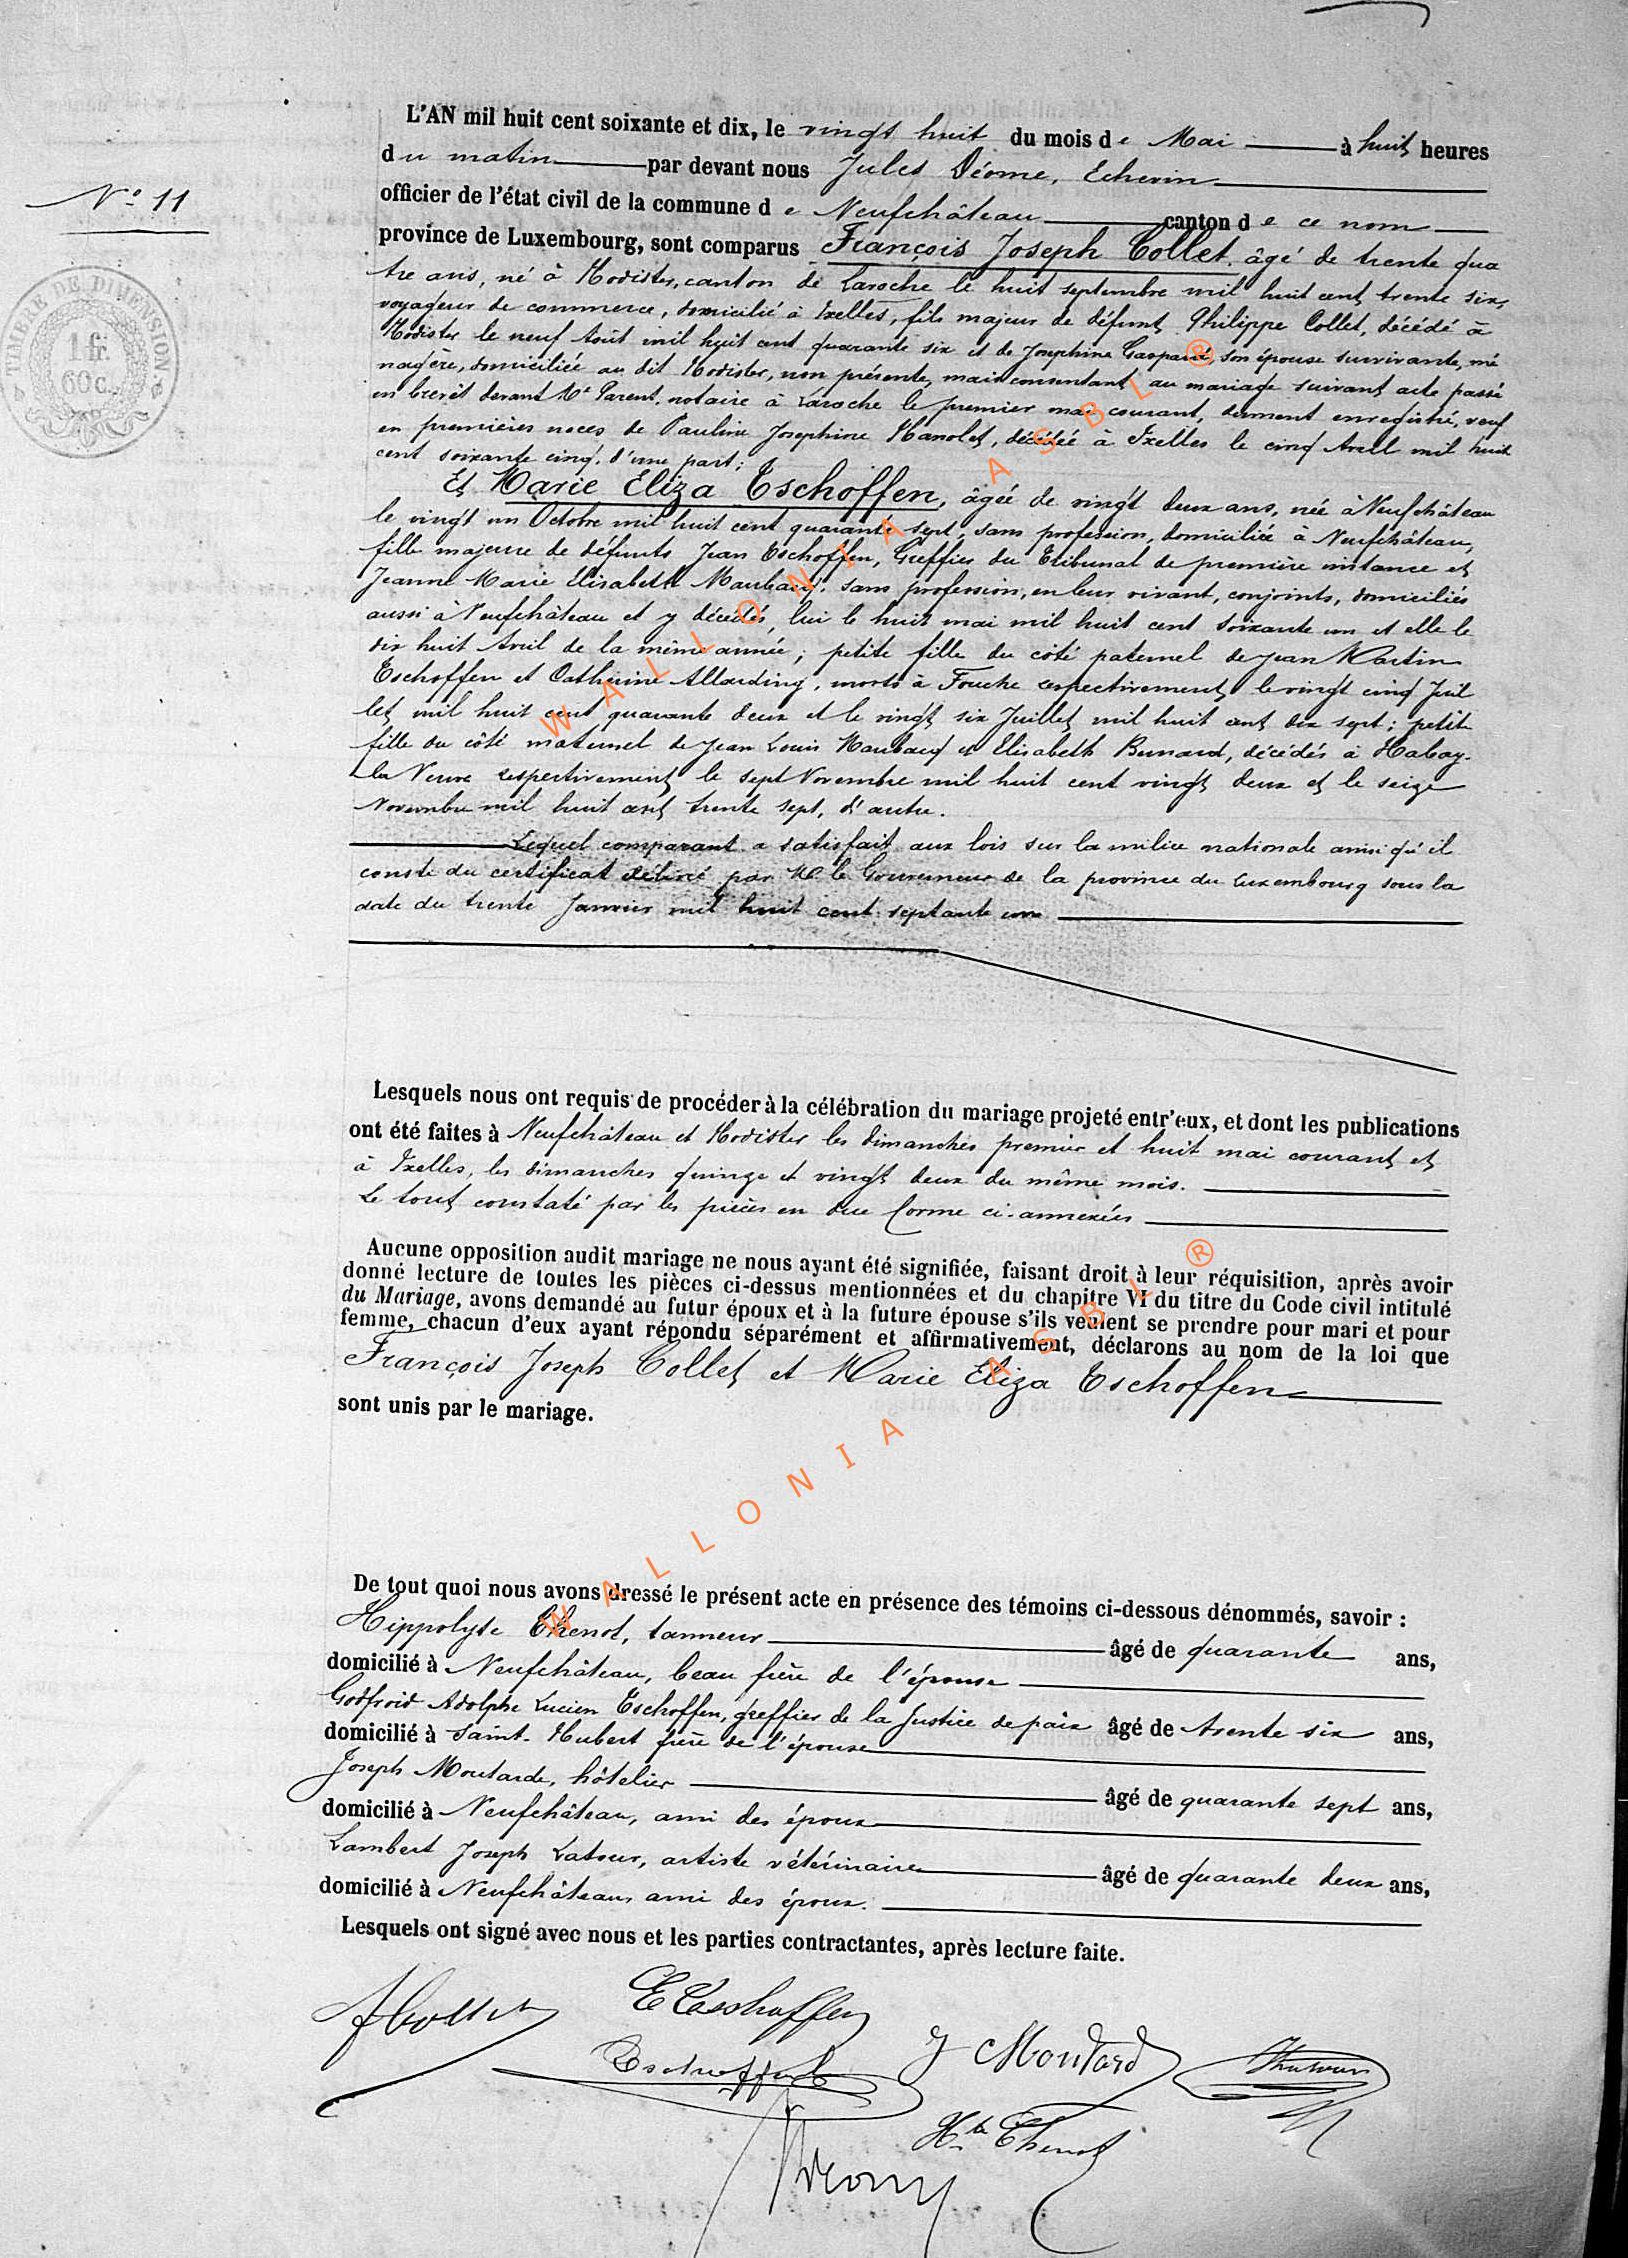 L'AN mil huit cent soixante et dix, le vingt huit du mois de Mai à huit heures
du matin par devant nous Jules Déome, Echevin
officier de l'état civil de la commune de Neufchâteau canton de ce nom
N° 11
province de Luxembourg, sont comparus François Joseph Collet, âgé de trente qua
tre ans, né à Hodister, canton de Laroche le huit septembre mil huit cent trente six,
voyageur de commerce, domicilié à Ixelles, fils majeur de défunt Philippe Collet, décédé à
Hodister le neuf Août mil huit cent quarante six et de Josephine Gaspard, son épouse survivante, mé
nagère, domiciliée au dit Hodister, non présente, mais consentant au mariage suivant acte passé
en brevet devant Me Parent, notaire à Laroche le premier mai courant, dument enregistré, veuf
en premières noces de Pauline Josephine Hanolet, décédée à Ixelles le cinq Avril mil huit
cent soixante cinq, d'une part;
Et Marie Eliza Tschoffen, âgée de vingt deux ans, née à Neufchâteau
le vingt un Octobre mil huit cent quarante sept, sans profession, domiciliée à Neufchâteau,
fille majeure de défunts Jean Tschoffen, Greffier du Tribunal de première instance et
Jeanne Marie Elisabeth sans profession, en leur vivant, conjoints, domiciliés
aussi à Neufchâteau et y décédés, lui le huit mai mil huit cent soixante un et elle le
dix huit Avril de la même année; petite fille du côté paternel de Jean Martin
Tschoffen et Catherine Allarding, morts à Fouche respectivement le vingt cinq Juil
let mil huit cent quarante deux et le vingt six Juillet mil huit cent dix sept; petite
fille du côté maternel de Jean Louis et Elisabeth décédés à Habay-
la Neuve respectivement le sept Novembre mil huit cent vingt deux et le seize
Novembre mil huit cent trente sept, d'autre.
Lequel comparant a satisfait aux lois sur la milice nationale ainsi qu'il
conste du certificat délivré par Mr le Gouverneur de la province du Luxembourg sous la
date du trente Janvier mil huit cent septante un
Lesquels nous ont requis de procéder à la célébration du mariage projeté entr'eux, et dont les publications
ont été faites à Neufchâteau et Hodister les dimanches premier et huit mai courant et
à Ixelles, les dimanches quinze et vingt deux du même mois.
Le tout constaté par les pièces en due forme ci-annexées
Aucune opposition audit mariage ne nous ayant été signifiée, faisant droit à leur réquisition, après avoir
donné lecture de toutes les pièces ci-dessus mentionnées et du chapitre VI du titre du Code civil intitulé
du Mariage, avons demandé au futur époux et à la future épouse s'ils veulent se prendre pour mari et pour
femme, chacun d'eux ayant répondu séparément et affirmativement, déclarons au nom de la loi que
François Joseph Collet et Marie Eliza Tschoffen
sont unis par le mariage.
De tout quoi nous avons dressé le présent acte en présence des témoins ci-dessous dénommés, savoir :
Hippolyte Thenot, tanneur âgé de quarante ans,
domicilié à Neufchâteau, beau frère de l'épouse
Godfroid Adolphe Lucien Tschoffen, greffier de la Justice de paix âgé de trente six ans,
domicilié à Saint-Hubert frère de l'épouse
Joseph Moutarde, hôtelier âgé de quarante sept ans,
domicilié à Neufchâteau, ami des époux
Lambert Joseph Latour, artiste vétérinaire âgé de quarante deux ans,
domicilié à Neufchâteau, ami des époux.
Lesquels ont signé avec nous et les parties contractantes, après lecture faite.
E Tschoffen
J Moutard
Tschoffen
Hte Thenot
TIMBRE DE DIMENSION
1 fr.
60 c.
WALLONIA ASBL ®
WALLONIA ASBL ®